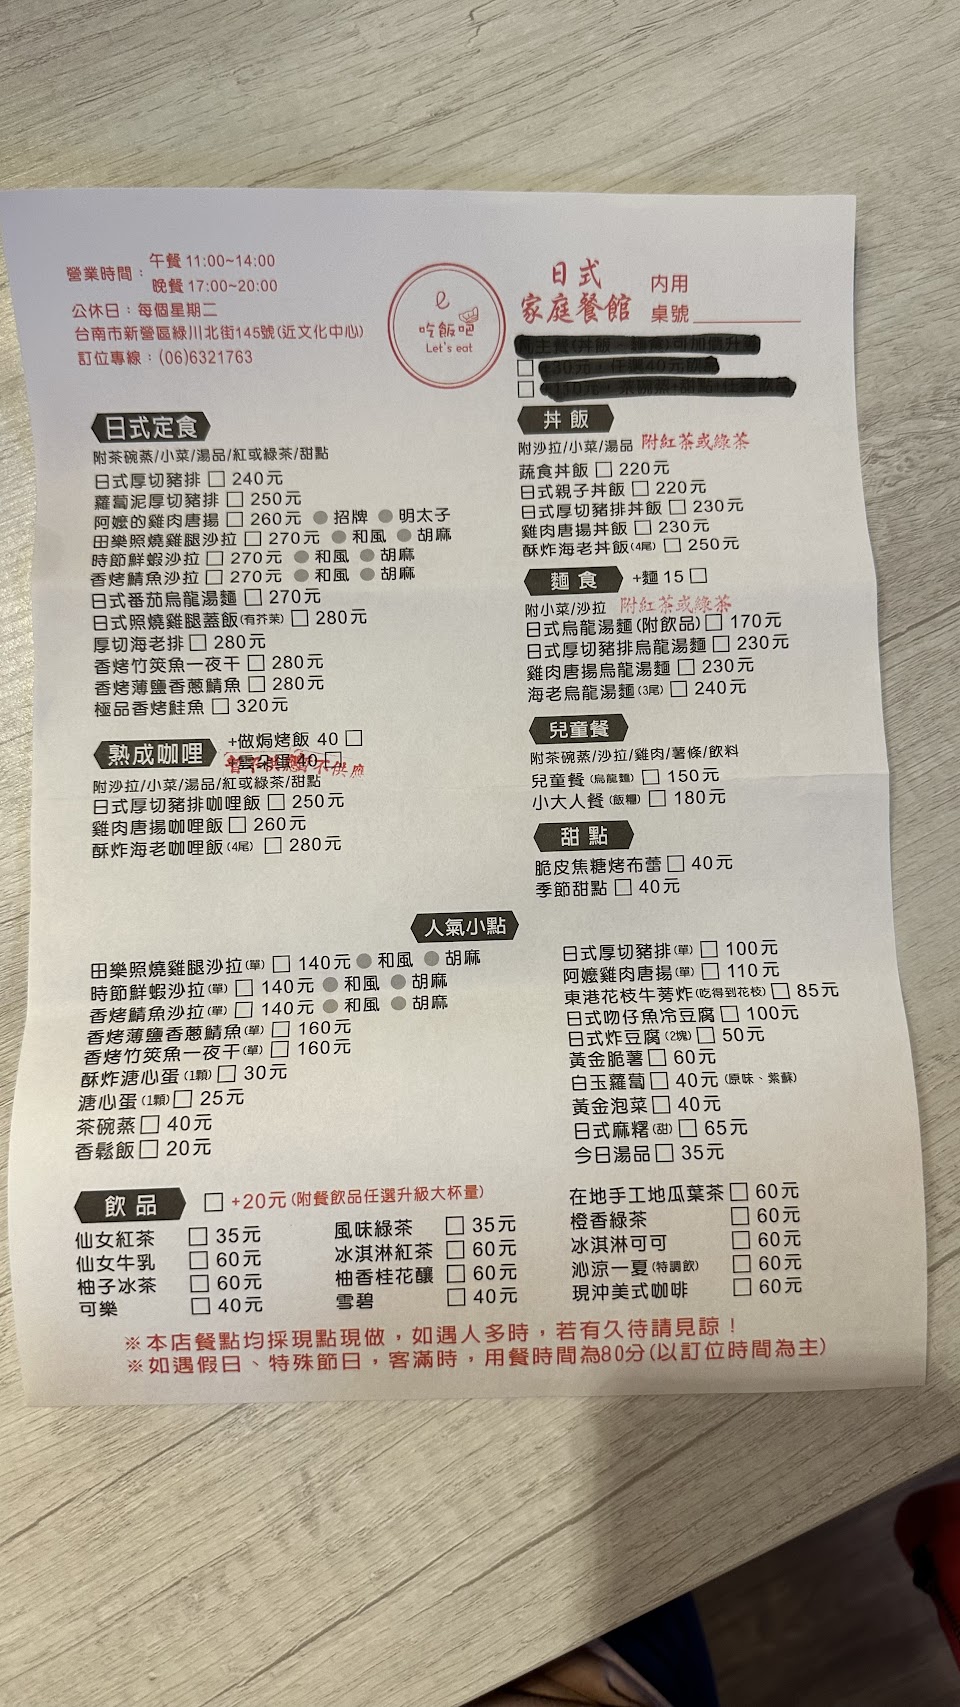 營業時間：午餐 11:00~14:00
晚餐 17:00~20:00
公休日：每個星期二
台南市新營區綠川北街145號(近文化中心)
訂位專線：(06)6321763
e
吃飯吧
Let's eat
日式
家庭餐館
內用
桌號
日式定食
附茶碗蒸/小菜/湯品/紅或綠茶/甜點
日式厚切豬排 □ 240元
蘿蔔泥厚切豬排 □ 250元
阿嬤的雞肉唐揚 □ 260元 ● 招牌 ● 明太子
田樂照燒雞腿沙拉 □ 270元 ● 和風 ● 胡麻
時節鮮蝦沙拉 □ 270元 ● 和風 ● 胡麻
香烤鯖魚沙拉 □ 270元 ● 和風 ● 胡麻
日式番茄烏龍湯麵 □ 270元
日式照燒雞腿蓋飯(有芥茉) □ 280元
厚切海老排 □ 280元
香烤竹筴魚一夜干 □ 280元
香烤薄鹽香蔥鯖魚 □ 280元
極品香烤鮭魚 □ 320元
熟成咖哩
+做焗烤飯 40 □
+雲朵蛋 40 □
附沙拉/小菜/湯品/紅或綠茶/甜點
日式厚切豬排咖哩飯 □ 250元
雞肉唐揚咖哩飯 □ 260元
酥炸海老咖哩飯(4尾) □ 280元
丼飯
附沙拉/小菜/湯品 附紅茶或綠茶
蔬食丼飯 □ 220元
日式親子丼飯 □ 220元
日式厚切豬排丼飯 □ 230元
雞肉唐揚丼飯 □ 230元
酥炸海老丼飯(4尾) □ 250元
麵食 +麵 15 □
附小菜/沙拉 附紅茶或綠茶
日式烏龍湯麵(附飲品) □ 170元
日式厚切豬排烏龍湯麵 □ 230元
雞肉唐揚烏龍湯麵 □ 230元
海老烏龍湯麵(3尾) □ 240元
兒童餐
附茶碗蒸/沙拉/雞肉/薯條/飲料
兒童餐(烏龍麵) □ 150元
小大人餐(飯糰) □ 180元
甜點
脆皮焦糖烤布蕾 □ 40元
季節甜點 □ 40元
人氣小點
田樂照燒雞腿沙拉(單) □ 140元 ● 和風 ● 胡麻
時節鮮蝦沙拉(單) □ 140元 ● 和風 ● 胡麻
香烤鯖魚沙拉(單) □ 140元 ● 和風 ● 胡麻
香烤薄鹽香蔥鯖魚(單) □ 160元
香烤竹筴魚一夜干(單) □ 160元
酥炸溏心蛋(1顆) □ 30元
溏心蛋(1顆) □ 25元
茶碗蒸 □ 40元
香鬆飯 □ 20元
日式厚切豬排(單) □ 100元
阿嬤雞肉唐揚(單) □ 110元
東港花枝牛蒡炸(吃得到花枝) □ 85元
日式吻仔魚冷豆腐 □ 100元
日式炸豆腐(2塊) □ 50元
黃金脆薯 □ 60元
白玉蘿蔔 □ 40元(原味、紫蘇)
黃金泡菜 □ 40元
日式麻糬(甜) □ 65元
今日湯品 □ 35元
飲品 □ +20元(附餐飲品任選升級大杯量)
仙女紅茶 □ 35元
仙女牛乳 □ 60元
柚子冰茶 □ 60元
可樂 □ 40元
風味綠茶 □ 35元
冰淇淋紅茶 □ 60元
柚香桂花釀 □ 60元
雪碧 □ 40元
在地手工地瓜葉茶 □ 60元
橙香綠茶 □ 60元
冰淇淋可可 □ 60元
沁涼一夏(特調飲) □ 60元
現沖美式咖啡 □ 60元
※本店餐點均採現點現做，如遇人多時，若有久待請見諒！
※如遇假日、特殊節日，客滿時，用餐時間為80分(以訂位時間為主)